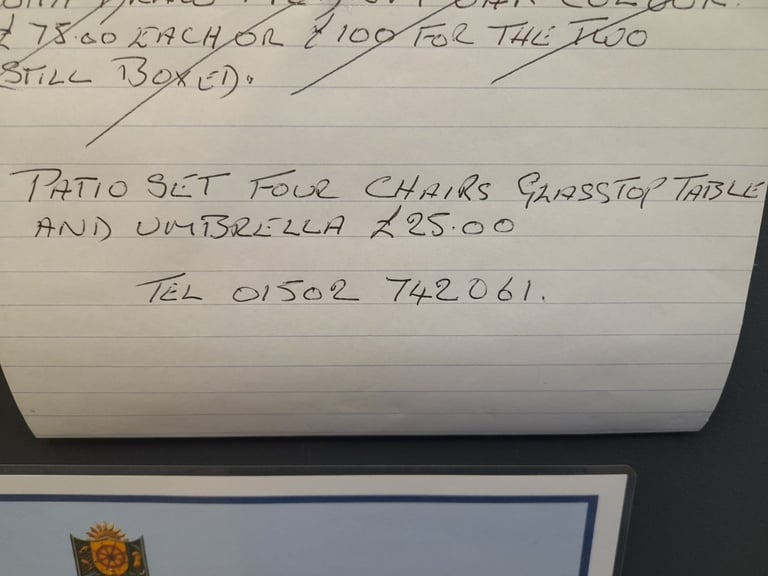 £75.00 EACH OR £100 FOR THE TWO
STILL BOXED.
PATIO SET FOUR CHAIRS GLASSTOP TABLE
AND UMBRELLA £25.00
TEL 01502 742061.